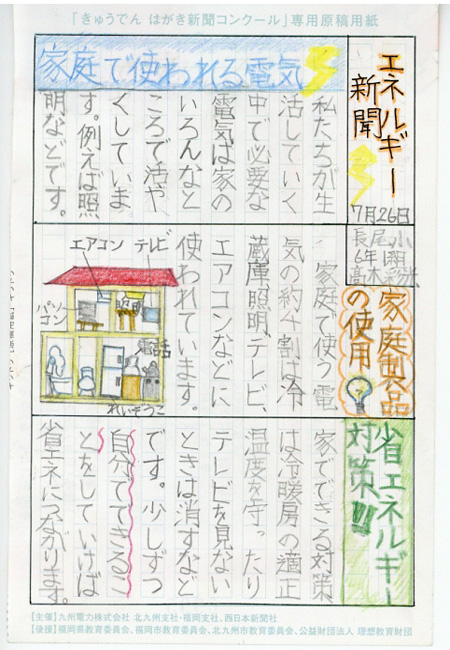 「きゅうでん はがき新聞コンクール」専用原稿用紙
エネルギー
新聞
7月26日
長尾小
6年
高木
家庭で使われる電気
私たちが生
活していく
中で必要な
電気は家の
いろんなと
ころで活や
くしていま
す。例えば照
明などです。
家庭製品
の使用
家庭で使う電
気の約4割は冷
蔵庫、照明、テレビ、
エアコンなどに
使われています。
エアコン テレビ
パソ
コン
電話
れいぞうこ
省エネルギー
対策!!
家でできる対策
は冷暖房の適正
温度を守ったり
テレビを見ない
ときは消すなど
です。少しずつ
自分でできるこ
とをしていけば
省エネにつながります。
【主催】九州電力株式会社 北九州支社・福岡支社、西日本新聞社
【後援】福岡県教育委員会、福岡市教育委員会、北九州市教育委員会、公益財団法人 理想教育財団